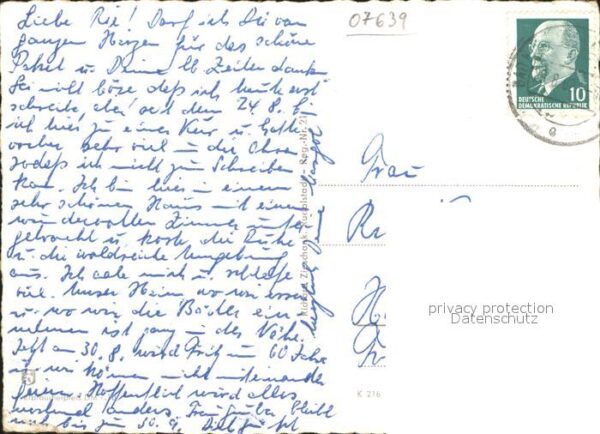 07639
Liebe Ria! Darf ich Dir von
ganzem Herzen für das schöne
Paket u. Deine lb. Zeilen danken.
Sei nicht böse daß ich heute erst
schreibe, aber seit dem 24.8. bin
ich hier zu einer Kur u. hatte
vorher sehr viel um die Ohren
sodaß ich nicht zum Schreiben
kam. Ich bin hier in einem
sehr schönen Haus mit einem
wundervollen Zimmer unter-
gebracht u. koste die Ruhe
u. die waldreiche Umgebung
aus. Ich aale mich u. schlafe
viel. Unser Heim wo wir essen
u. wo wir die Bäder ein-
nehmen ist ganz in der Nähe.
Jetzt am 30.8. wird Fritz 60 Jahre
u. wir können nicht miteinander
feiern. Hoffentlich wird alles
anders. bleibt
noch bis zum 30.9.
DEUTSCHE
DEMOKRATISCHE REPUBLIK
10
Frau
privacy protection
Datenschutz
K 216